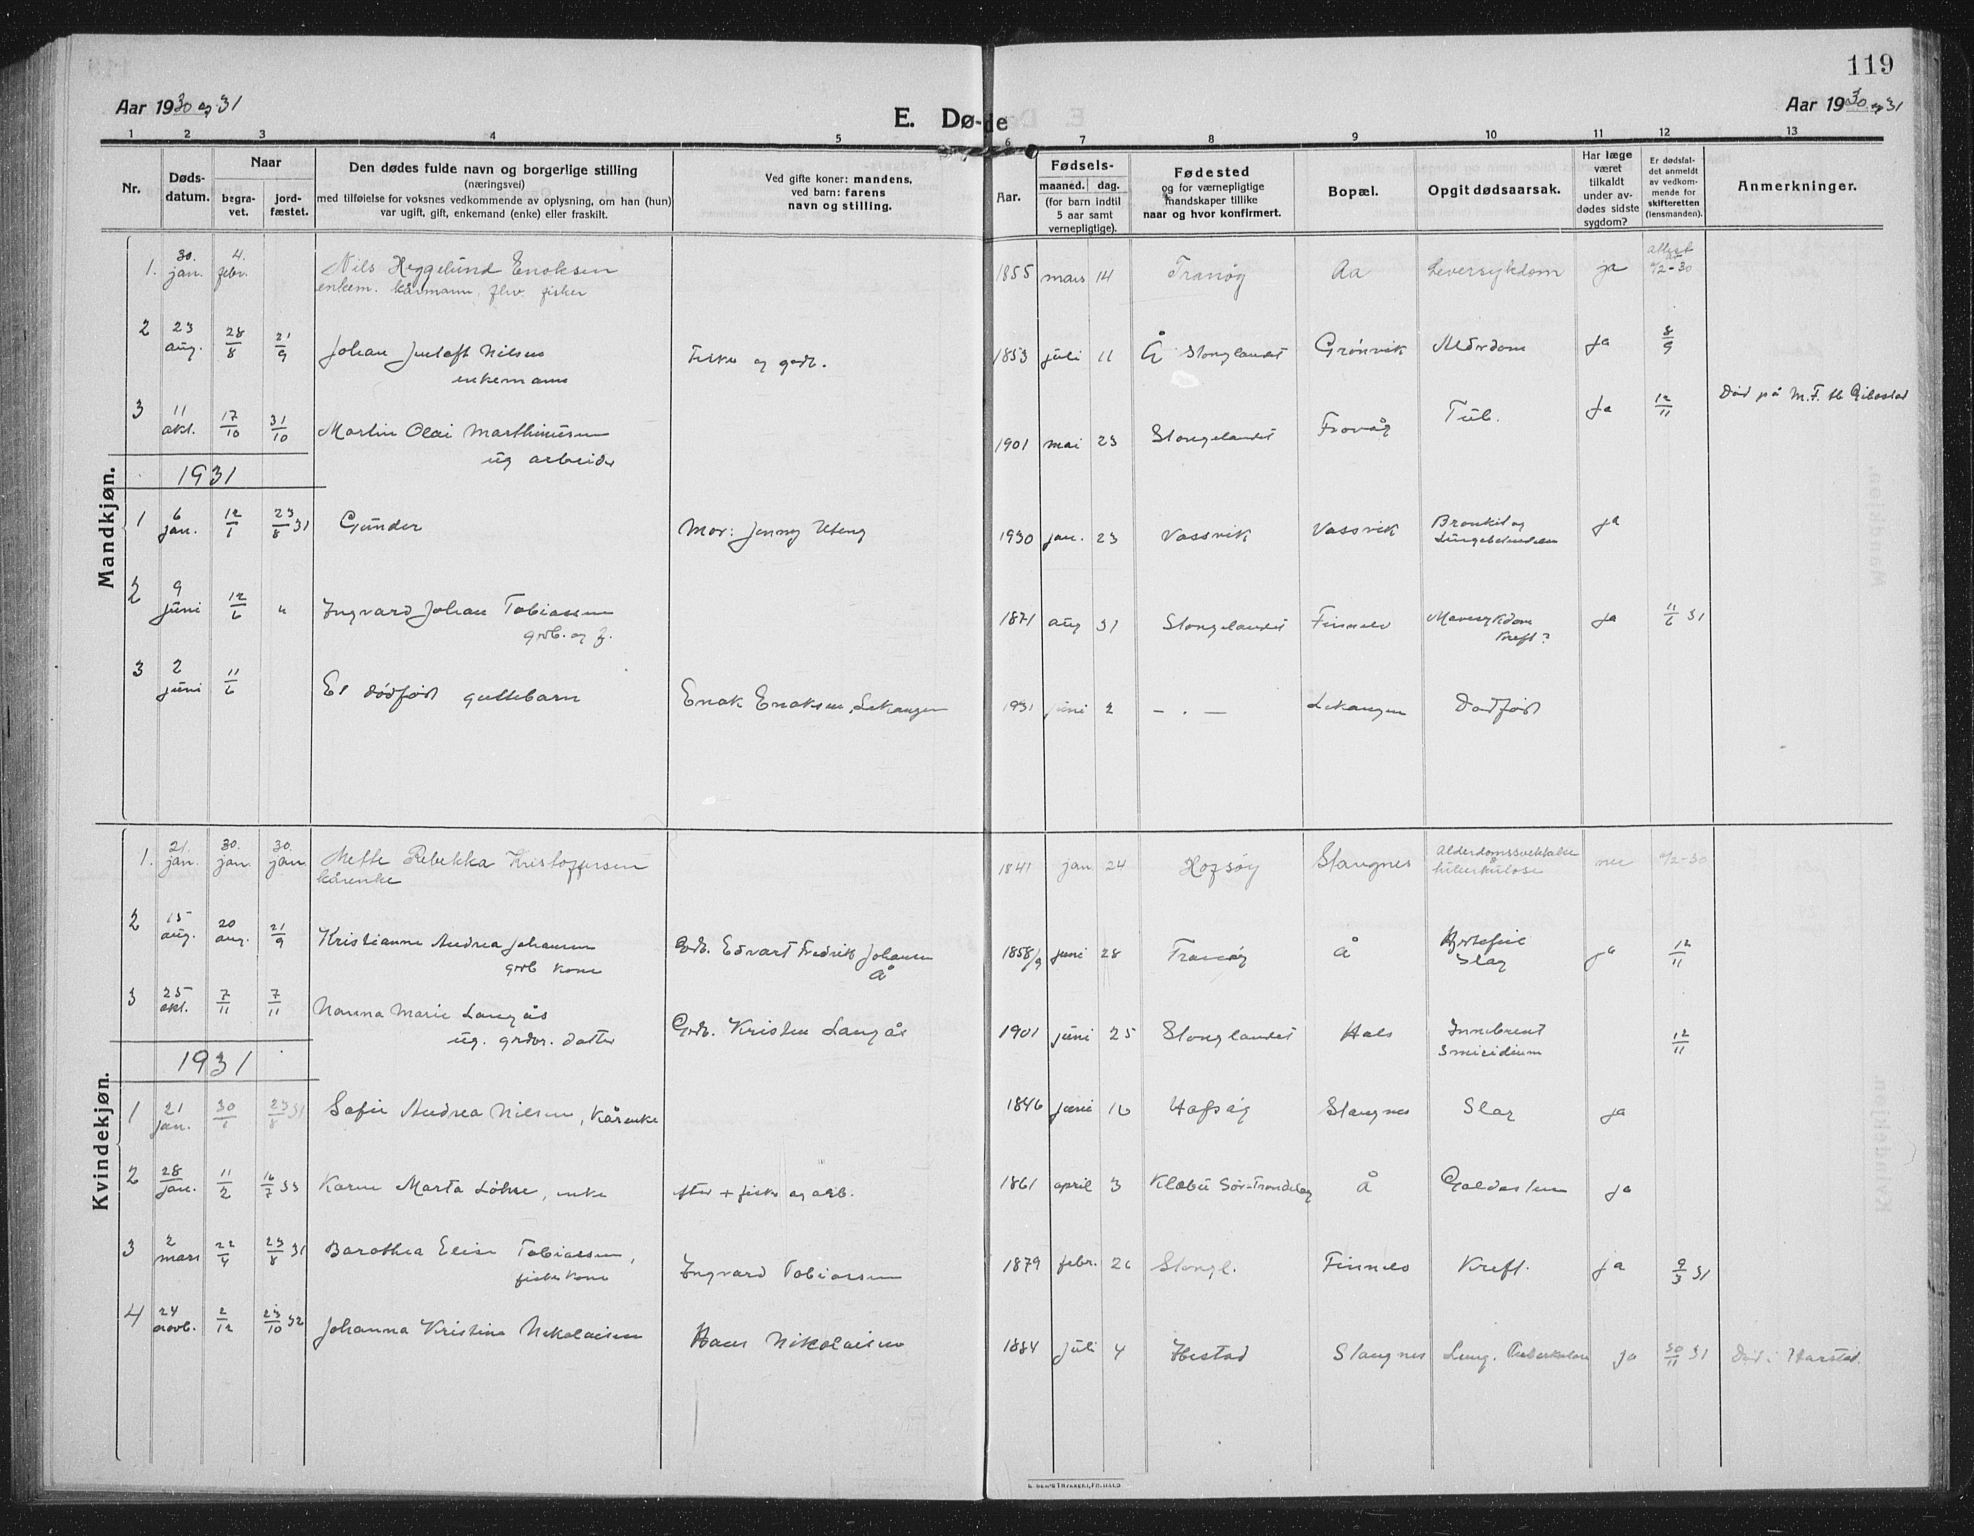 119
Aar 1930 og 31
E. Dø-de
Aar 1930 og 31
1 2 3 4 5 6 7 8 9 10 11 12 13
Nr.
Døds-datum.
Naar
begra-vet.
jord-fæstet.
Den dødes fulde navn og borgerlige stilling
(næringsvei)
med tilføielse for voksnes vedkommende av oplysning, om han (hun)
var ugift, gift, enkemand (enke) eller fraskilt.
Ved gifte koner: mandens,
ved barn: farens
navn og stilling.
Aar.
Fødsels-
maaned. dag.
(for barn indtil
5 aar samt
vernepligtige).
Fødested
og for værnepligtige
mandskaper tillike
naar og hvor konfirmert.
Bopæl.
Opgit dødsaarsak.
Har læge
været
tilkaldt
under av-
dødes sidste
sygdom?
Er dødsfal-
det anmeldt
av vedkom-
mende for
skifteretten
(lensmanden).
Anmerkninger.
Mandkjøn.
1. 30. jan. 4. febr. Nils Heggelund Enoksen 1855 mars 14 Tranøy Aa Leversykdom ja 6/2-30
enkem. kårmann, fhv. fisker
2 23 aug. 28/8 21/9 Johan Nilsen Fisker og gdbr. 1853 juli 11 Å Stonglandet Grønvik Alderdom Ja 8/9
enkemann
3 11 okt. 17/10 31/10 Martin Olai Marthinusen 1901 mai 23 Stongelandet Frovåg Tub. Ja 12/11 Død på M.F. Gibostad
ug arbeider
1931
1 6 jan. 12/1 23/8 31 Gunder Mor: Jenny Uteng 1930 jan. 23 Vassvik Vassvik Bronkit og ja
Lungebetendelse
2 9 juni 12/6 " Ingvard Johan Tobiassen 1871 aug 31 Stongelandet Finnelv Mavesykdom ja 11/6 31
grdb. og f. Kreft?
3 2 juni 11/6 Et dødfødt guttebarn Enok Enoksen, Lekangen 1931 juni 2 — . — Lekangen Dødfødt
Kvindekjøn.
1. 21. jan. 30. jan. 30. jan. Mette Rebekka Kristoffersen 1841 jan. 24 Hofsøy Stangnes Alderdomssvekkelse nei 6/2-30
kårenke tuberkulose
2 15 aug. 20 aug. 21/9 Kristianne Andrea Johansen Grdb. Edvart Fredrik Johansen 1858/9 juni 28 Tranøy Å Hjertefeil ja 12/11
grdb kone Å Slag
3 25 okt. 7/11 7/11 Nanna Marie Langås Grdb. Kristen Langås 1901 juni 25 Stonglandet Hals Innebrent 12/11
ug. grdbr. datter
1931
1 21 jan. 30/1 23/8 31 Sofie Andrea Nilsen, Kårenke 1846 juni 16 Hofsøy Stangnes Slag ja
2 28 jan. 11/2 16/7 33 Karen Marta Løhre, enke efter + fisker og arb. 1861 april 3 Klæbu Sør-Trøndelag Å Galdesten ja
3 2 mars 22/4 23/8 31 Dorothea Elise Tobiassen, Ingvard Tobiassen 1879 febr. 26 Stongl. Finnelv Kreft. ja 9/3 31
fisker kone
4 24 novb. 2/12 23/10 32 Johanna Kristine Nikolaisen Hans Nikolaisen 1884 juli 4 Hestad Stangnes Lung. Tuberkulose ja 30/11 31 Død i Harstad.